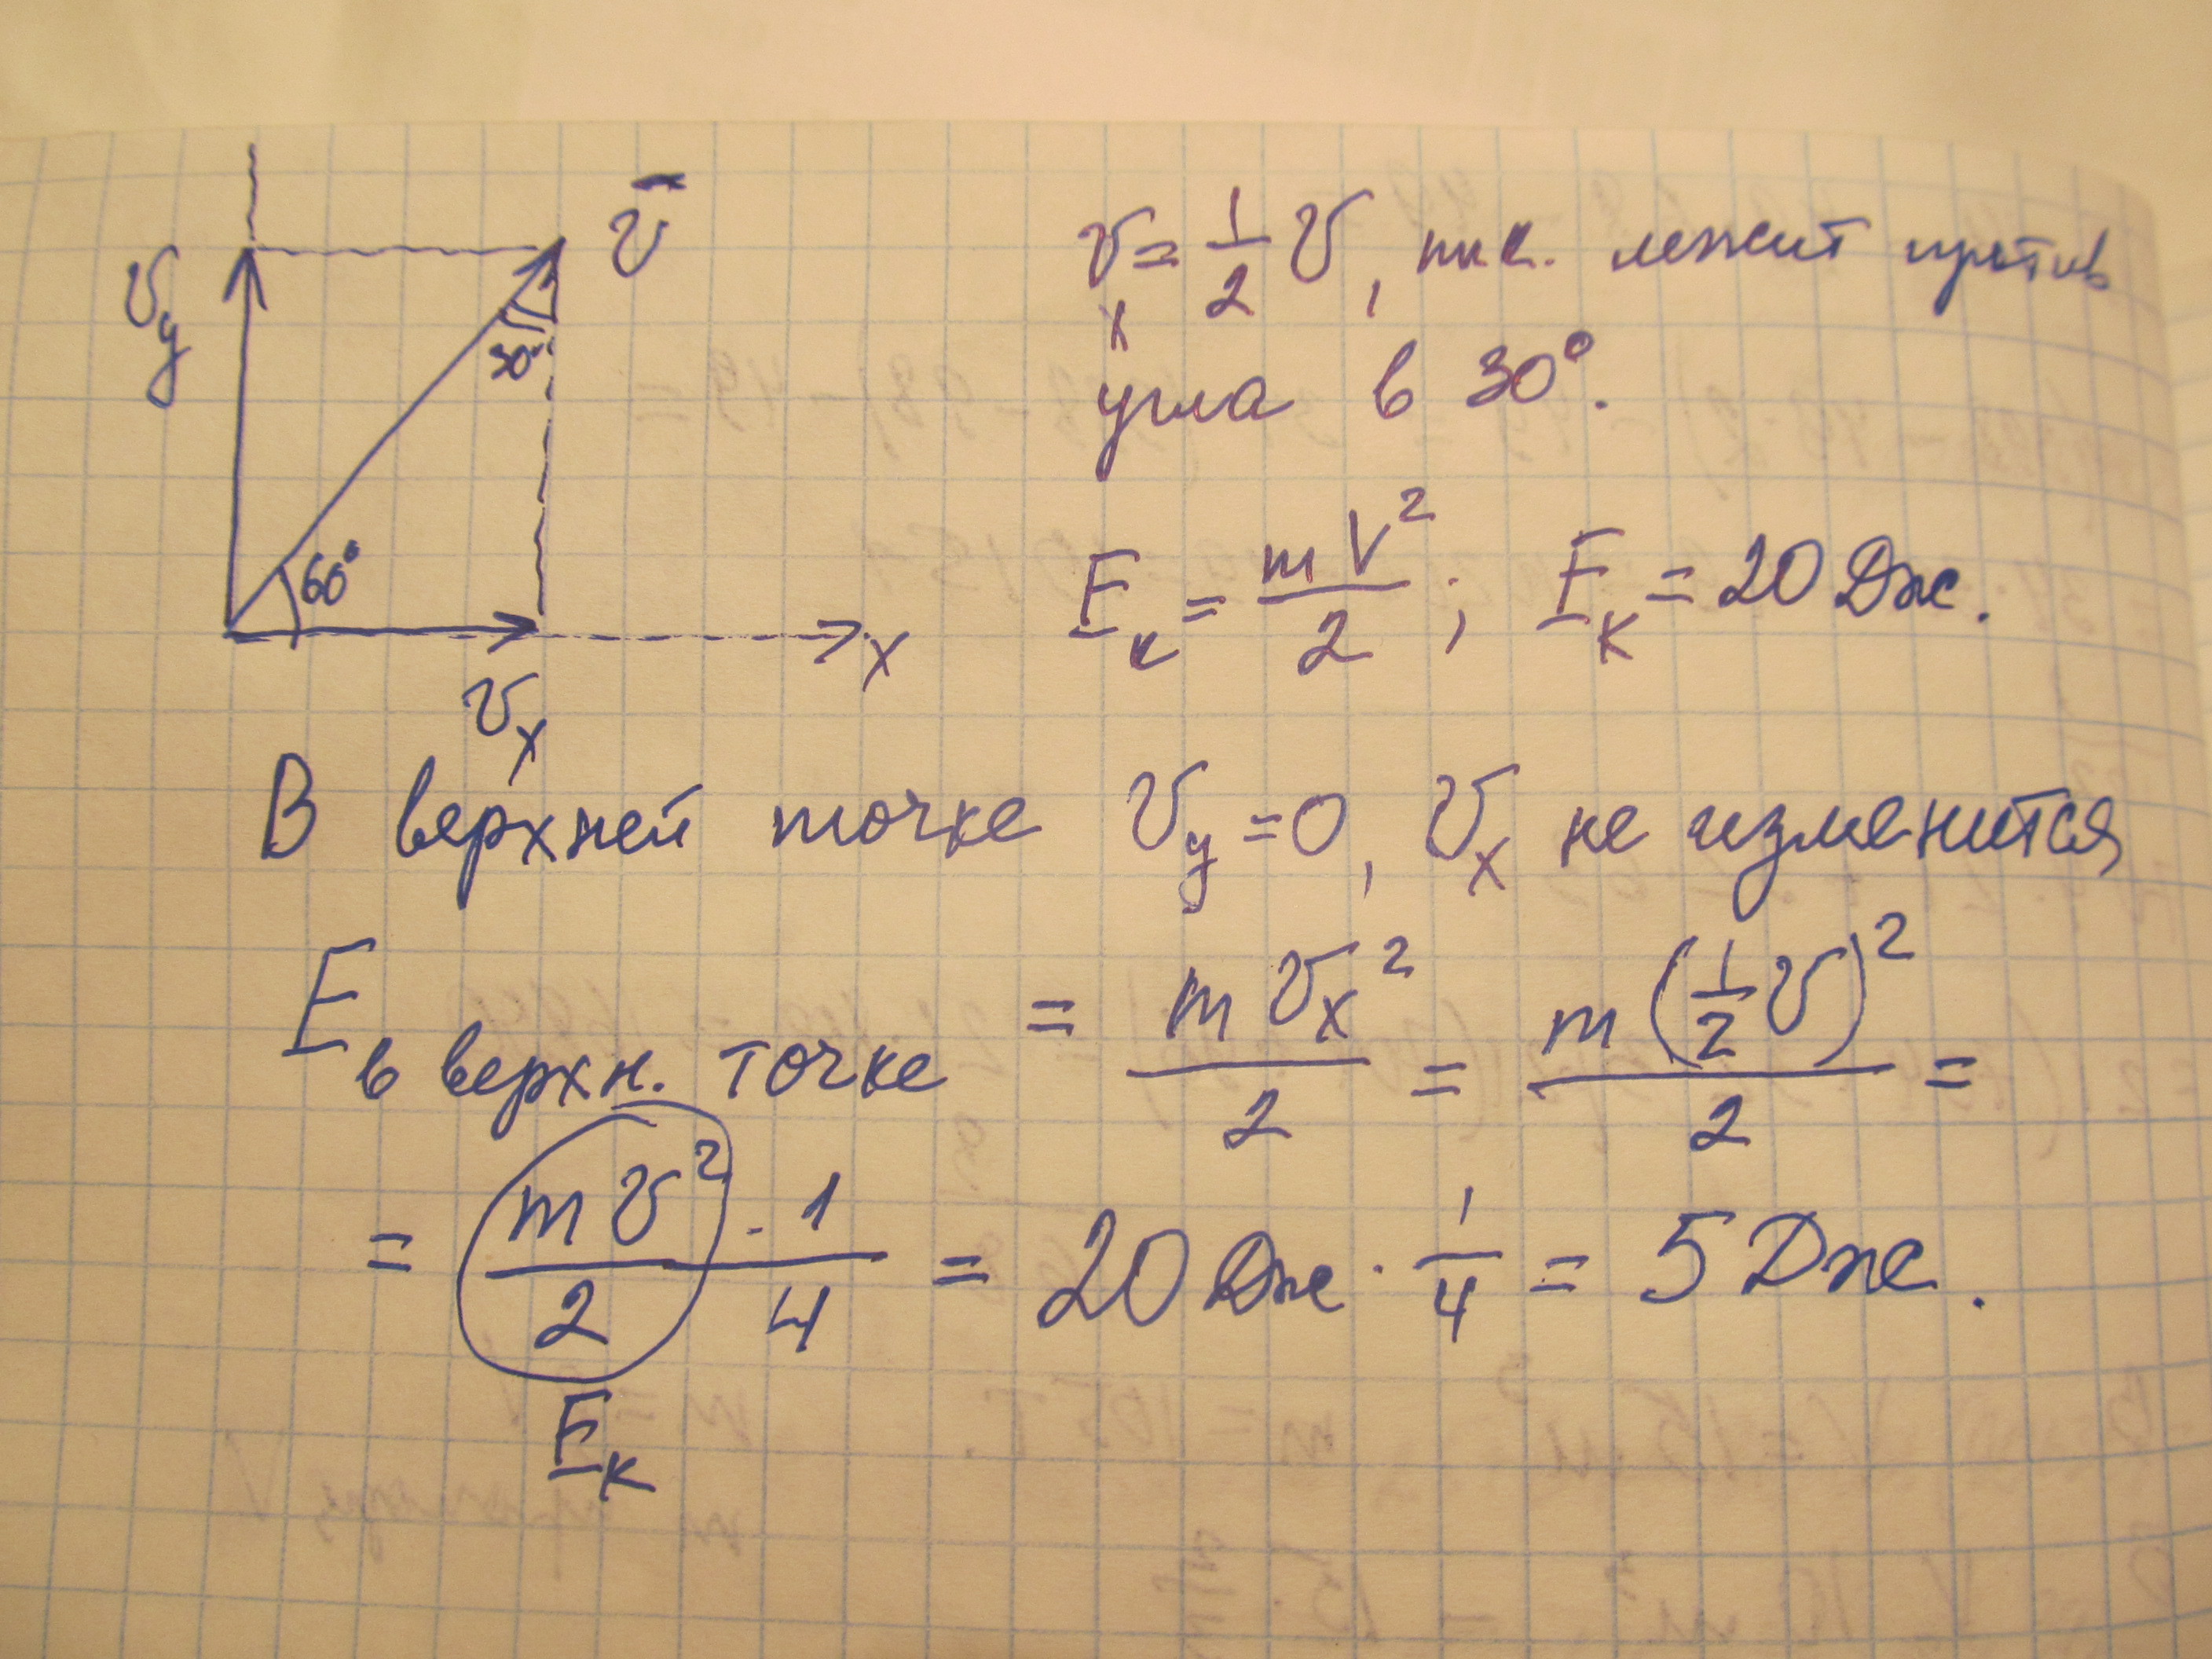 v̄
v_y
30°
60°
x
v_x
v_x = 1/2 v, т.к. лежит против
угла в 30°.
E_к = mV²/2 ; E_к = 20 Дж.
В верхней точке v_y = 0, v_x не изменится
E в верхн. точке = mv_x²/2 = m(1/2 v)²/2 =
= mv²/2 · 1/4 = 20 Дж · 1/4 = 5 Дж.
E_к